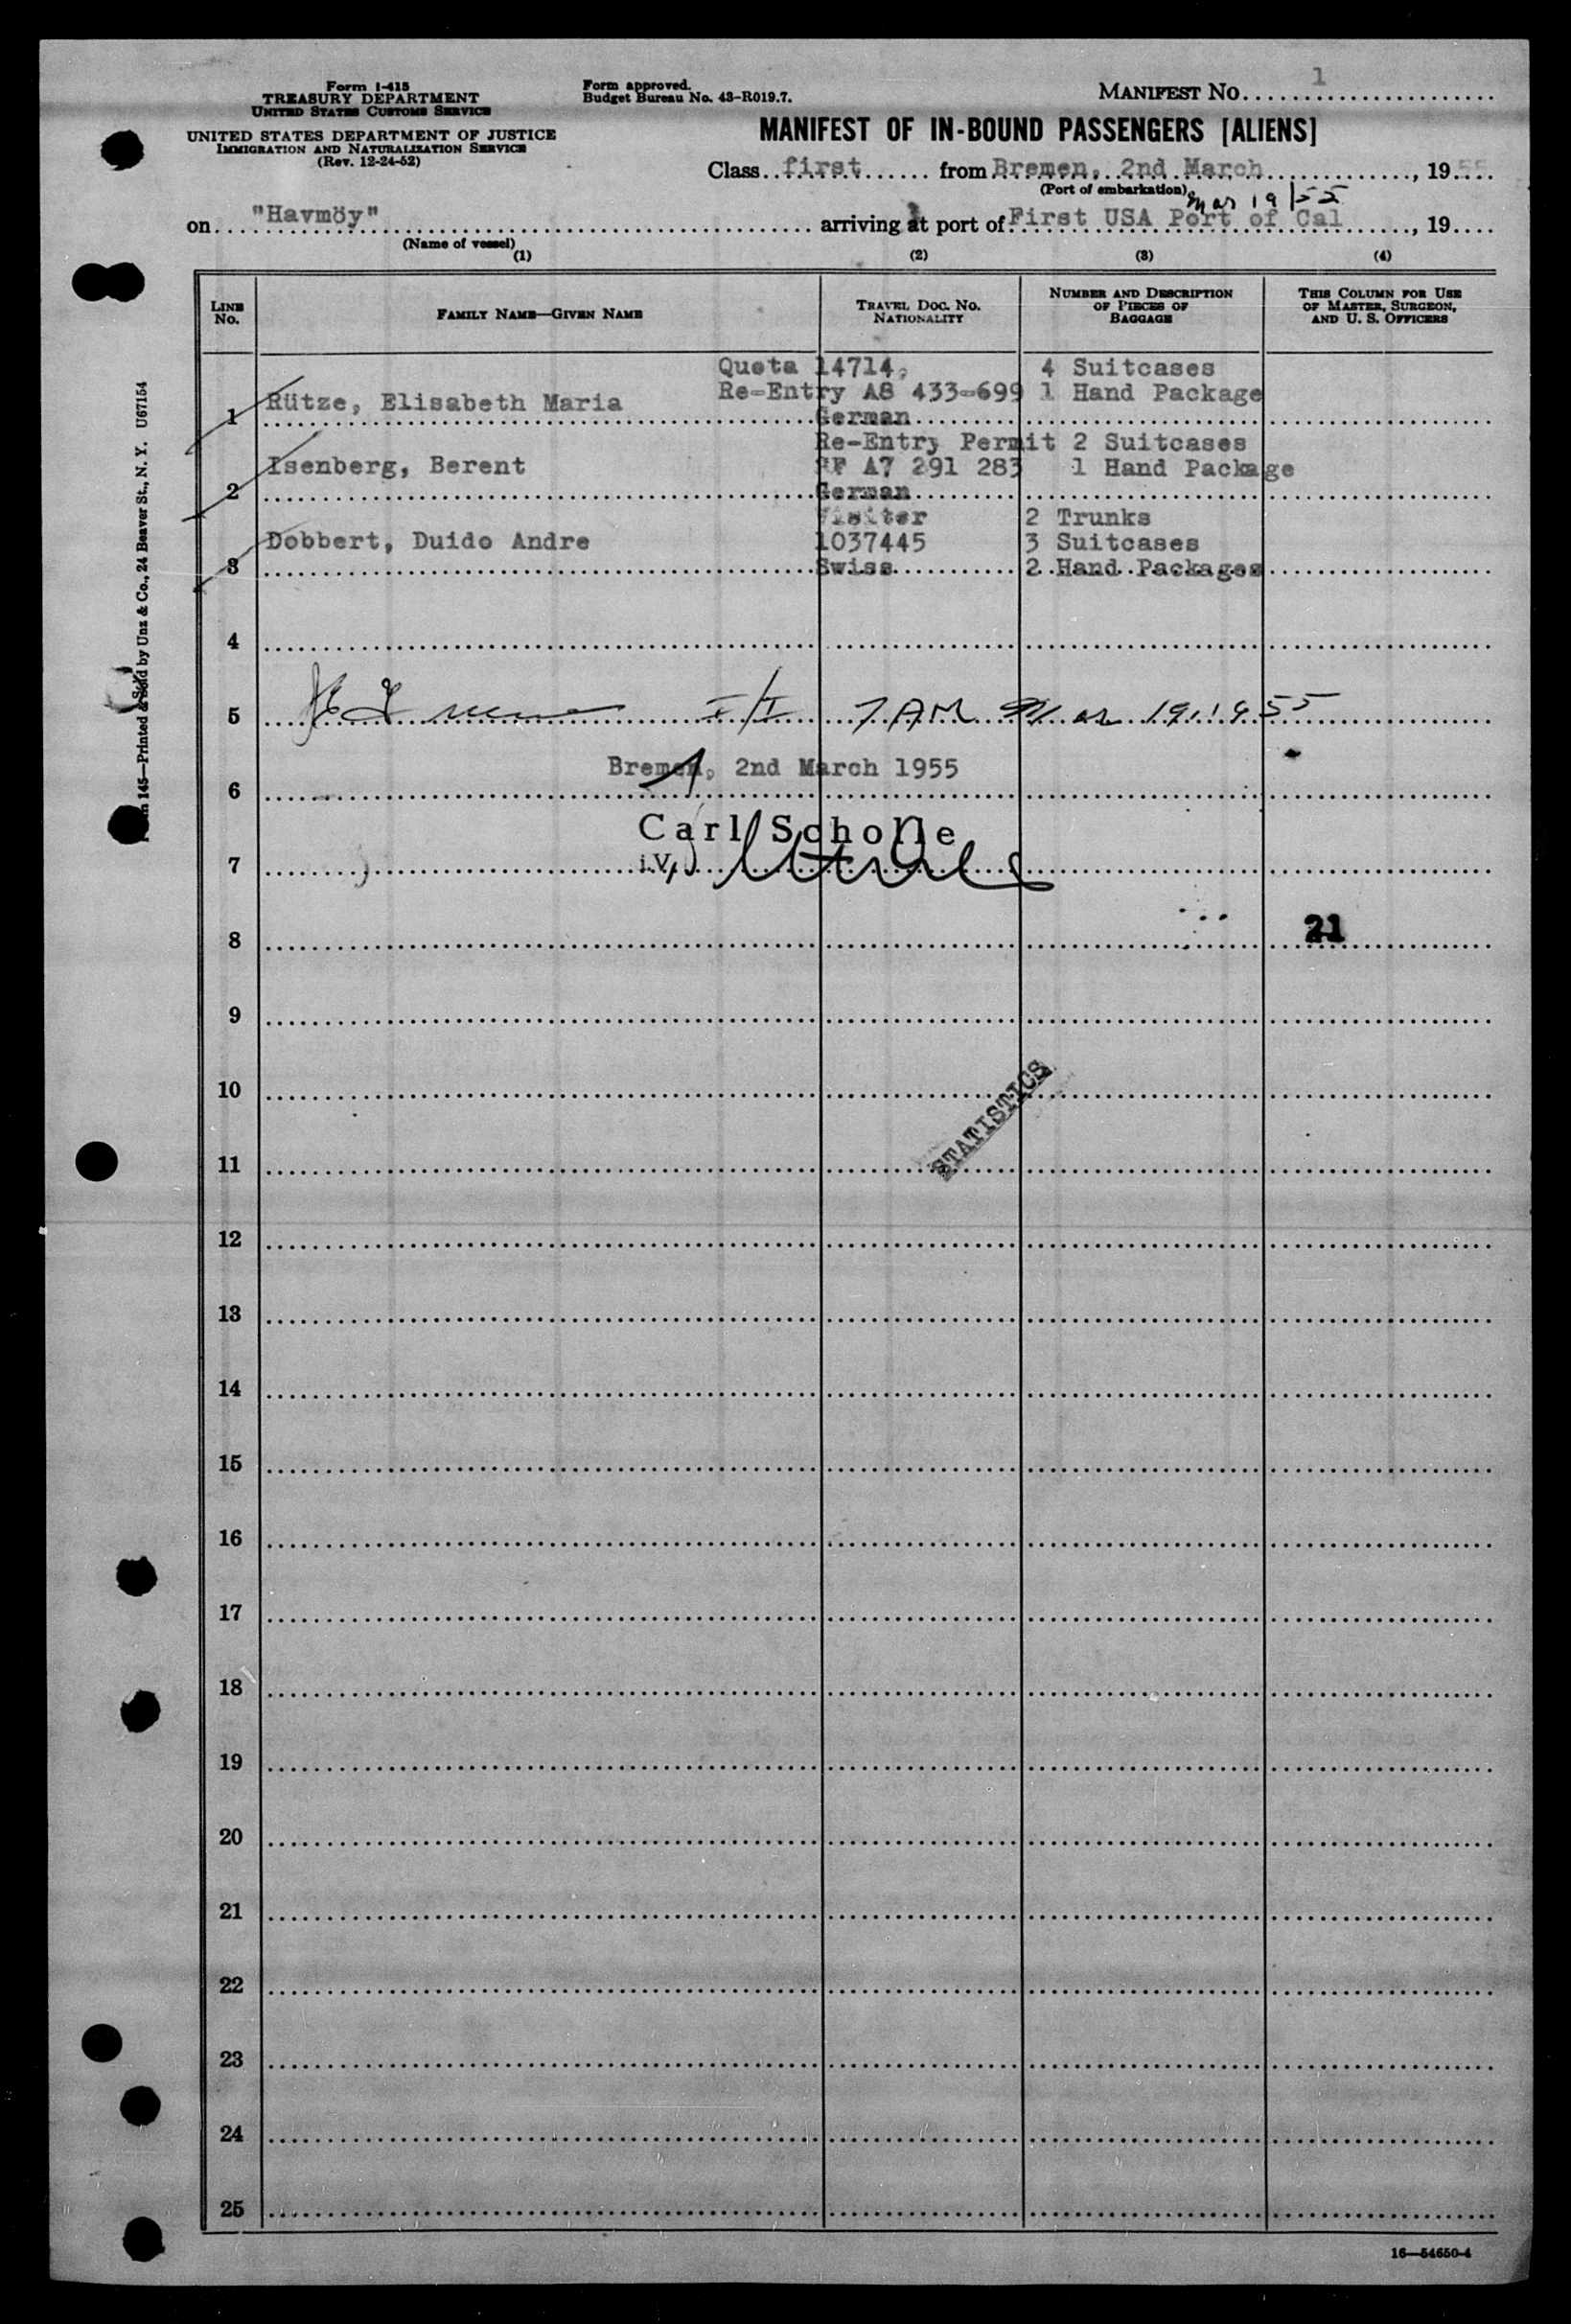 Form I-415
TREASURY DEPARTMENT
UNITED STATES CUSTOMS SERVICE
UNITED STATES DEPARTMENT OF JUSTICE
IMMIGRATION AND NATURALIZATION SERVICE
(Rev. 12-24-52)
Form approved.
Budget Bureau No. 43-R019.7.
MANIFEST NO. 1
MANIFEST OF IN-BOUND PASSENGERS [ALIENS]
Class first from Bremen, 2nd March, 1955
(Port of embarkation)
Mar 19/55
on "Havmöy" arriving at port of First USA Port of Cal, 19
(Name of vessel)
(1) (2) (3) (4)
LINE NO.
FAMILY NAME—GIVEN NAME
TRAVEL DOC. NO. NATIONALITY
NUMBER AND DESCRIPTION OF PIECES OF BAGGAGE
THIS COLUMN FOR USE OF MASTER, SURGEON, AND U. S. OFFICERS
Quota 14714, 4 Suitcases
1 Rütze, Elisabeth Maria Re-Entry A8 433-699 1 Hand Package
German
Re-Entry Permit 2 Suitcases
2 Isenberg, Berent A7 291 283 1 Hand Package
German
Visiter 2 Trunks
3 Dobbert, Duido Andre 1037445 3 Suitcases
Swiss 2 Hand Packages
4
5 I/I 7 AM Mar 19, 1955
6 Bremen, 2nd March 1955
Carl Scholle
7 i.V.
8 21
9
10
STATISTICS
11
12
13
14
15
16
17
18
19
20
21
22
23
24
25
16—54650-4
Form 145—Printed & Sold by Unz & Co., 24 Beaver St., N. Y. U67154